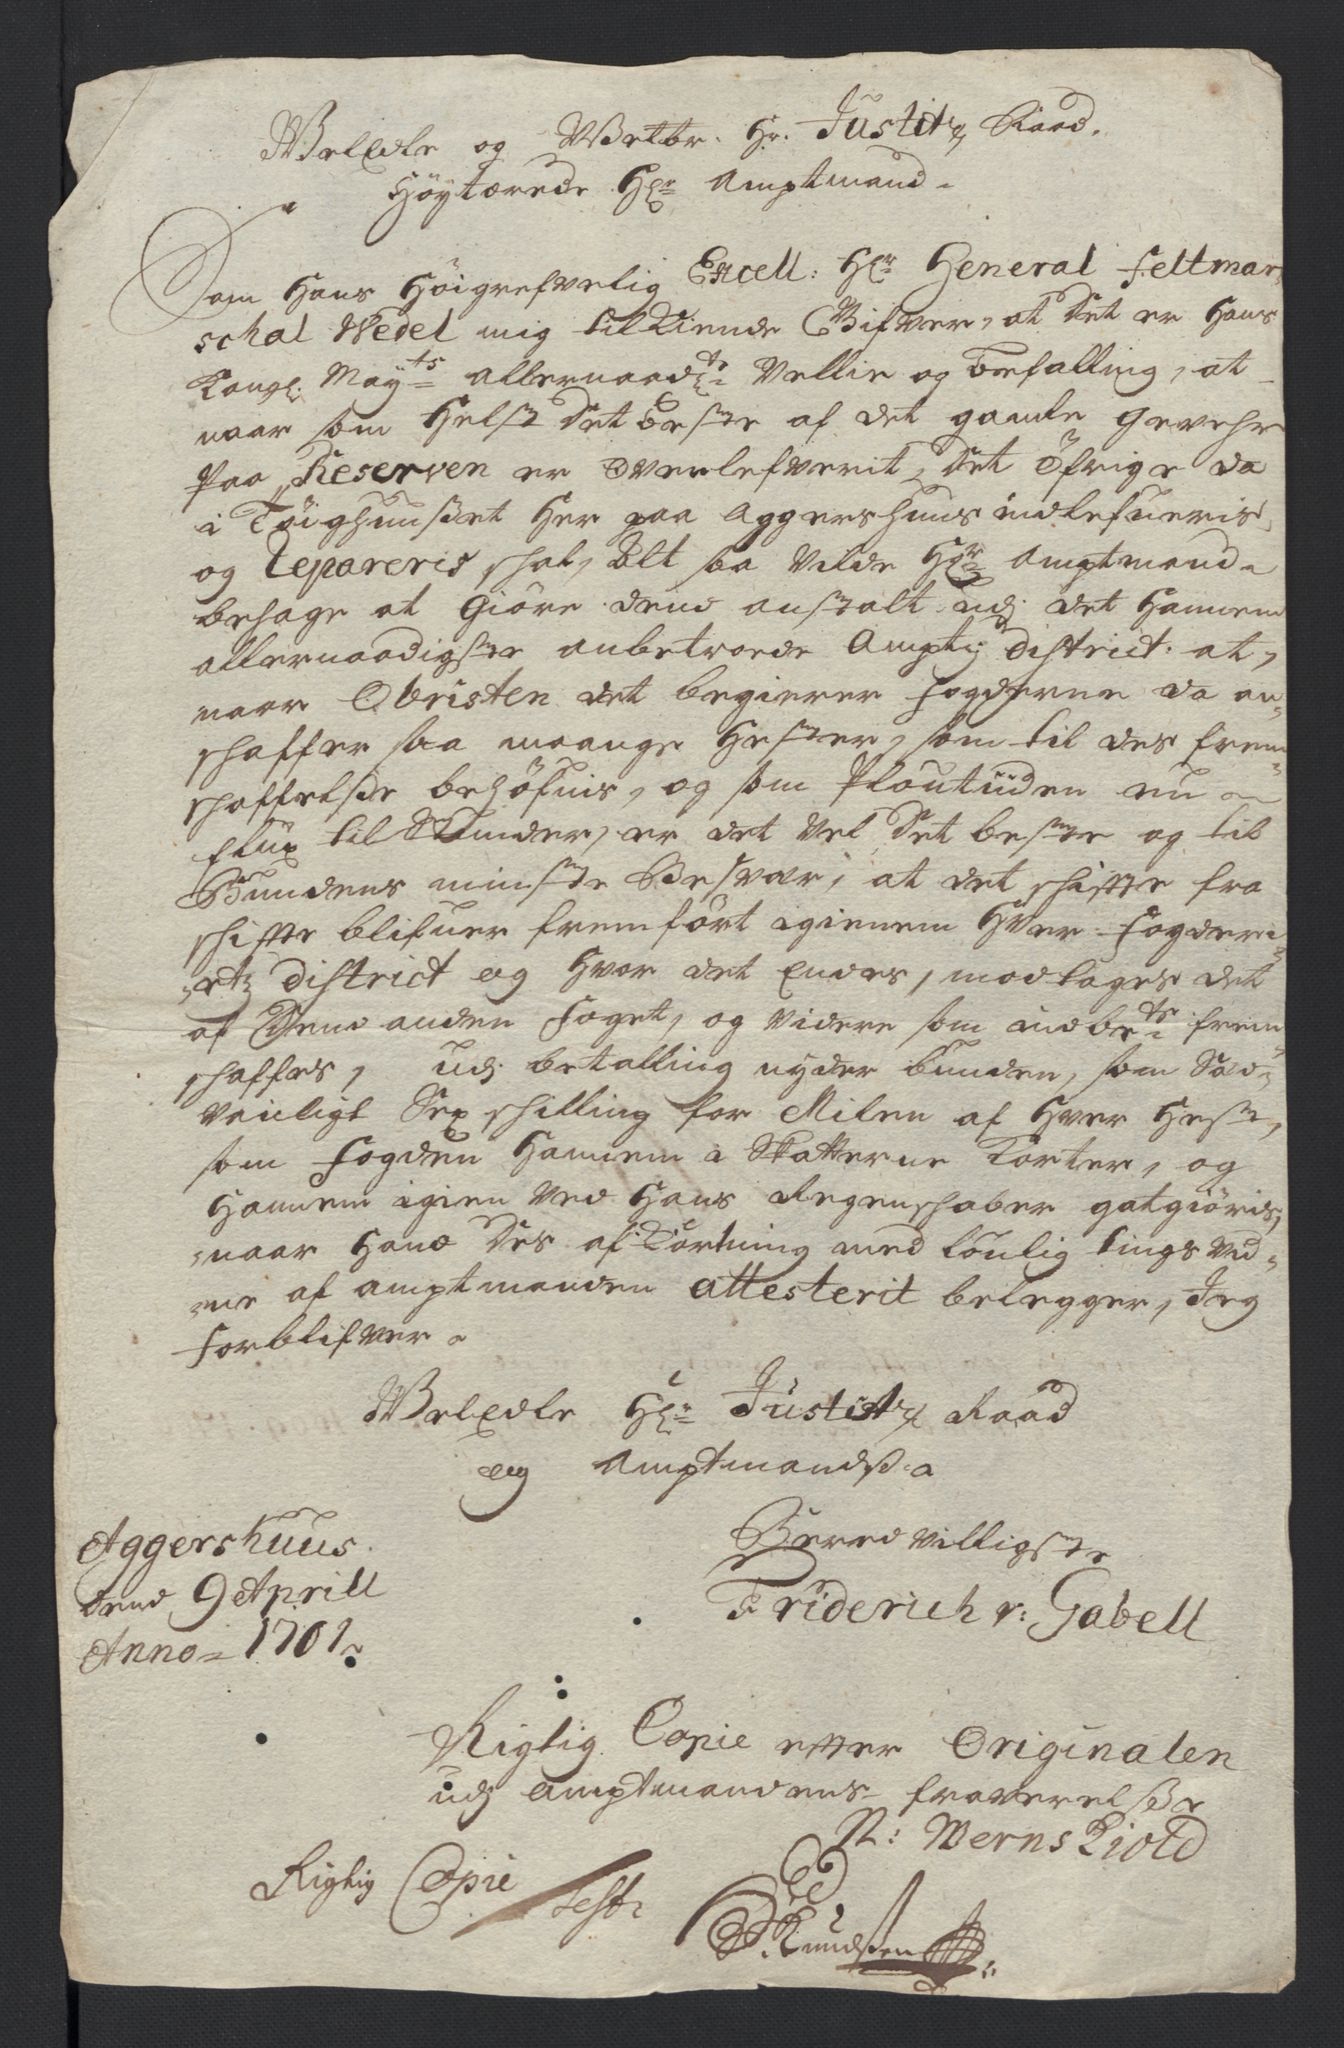 WelEdle og Welbr. Hr. Justitz Raad.
Höytærede Hr. Amptmand.
Som Hans Höigrefvelig Excell: Hr. General Feltmar-
schal Wedel mig tilkiende Gifver, at det er Hans
Kongl. Mayts allernaadte Vellie og Befalling, at
naar som Helst det beste af det gamle Gevehr
paa Reserven er Ovrlefverit, det Öfrige da
i Töighuusset Her paa Aggershuus indlefueris
og Repareris schal, Alt saa Vilde Hr. Amptmand
behage at Giöre dend anstalt udj det Hannem
allernaadigste anbetroede Ampts District at,
naar Obristen det begierer fogderne da an-
schaffer saa maange Hester, som til des frem-
schaffelsse behöfuis, og som Ploutiiden nu
flux til Stunder, er det Vel det beste og til
Bundens minste Besvær, at det schifte fra
schifte blifuer fremfört igienem Hver Fogderi-
etz District og Hvor det Endes, modtages det
af Dend anden Foget, og Videre som indbete frem
schaffes, udj betalling nyder bunden, som Sæd-
vanligt Sex schilling for Milen af Hver Hest,
som Fogden Hannem i Skatterne Korter, og
Hannem igien Ved Hans Regenschaber gotgiöris,
naar Hand des afkortning med loulig tings Vid-
ne af amptmanden attesterit belegger, Jeg
forblifver
WelEdle Hr. Justitz Raad
og Amptmands
Aggershuus
dend 9 Aprill
Anno 1701
Beredvilligste
Friderich v: Gabell
Rigtig Copie efter Originalen
udj amptmandens fraverelsse
N: Wernskiold
Rigtig Copie Test.
Knudssen